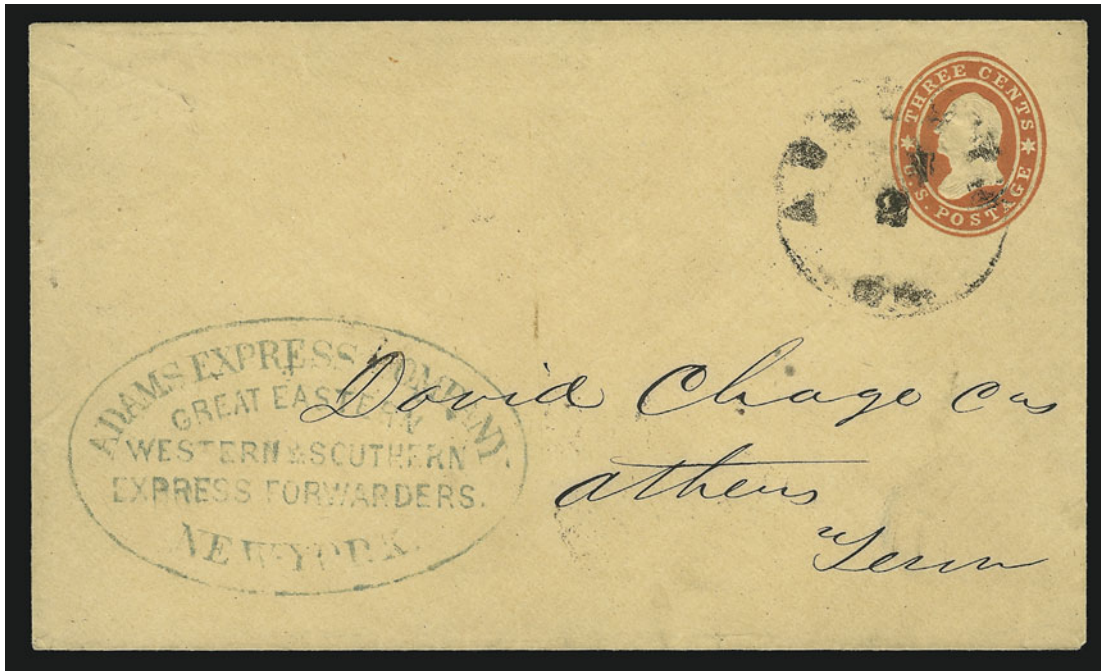 THREE CENTS
U.S. POSTAGE
2
ADAMS EXPRESS COMPANY.
GREAT EASTERN
WESTERN & SOUTHERN
EXPRESS FORWARDERS.
NEW-YORK.
David
athens
Tenn